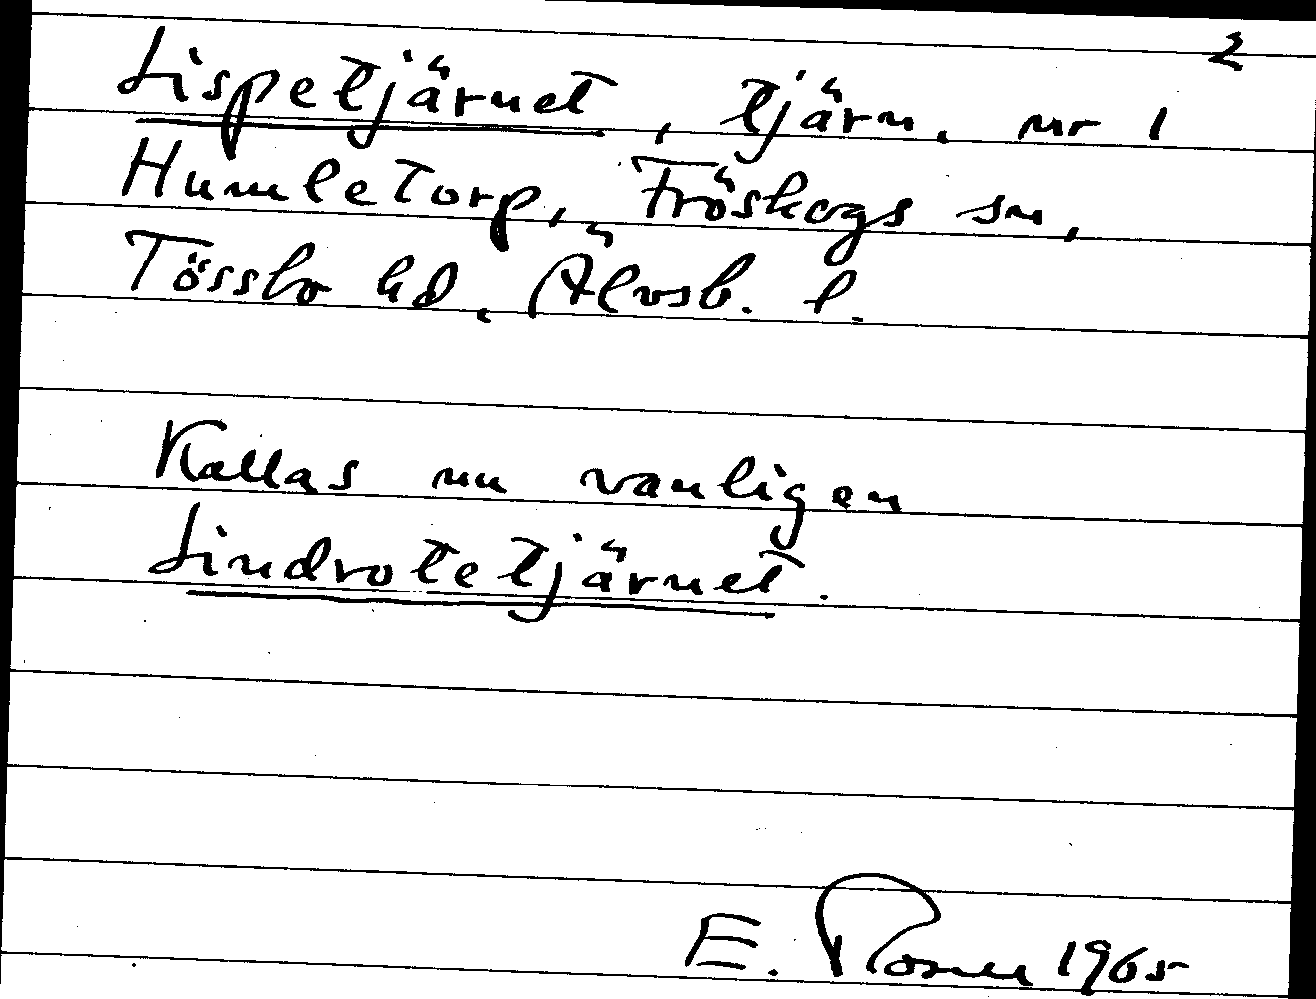 2
Lispetjärnet, tjärn, nr 1
Humletorp, Fröskogs sn,
Tössbo hd, Älvsb. l.
Kallas nu vanligen
Lindrotetjärnet.
E. Rosell 1965